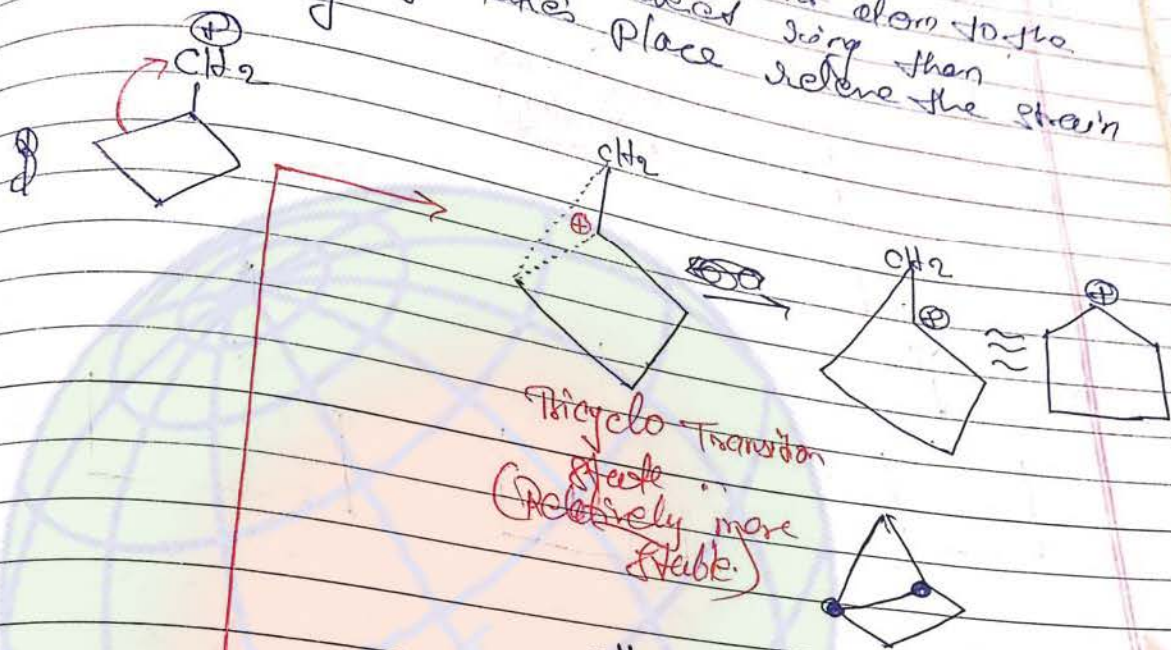 atom to the
ring than
Place relieve the strain
⊕
CH2
CH2
⊕
CH2
⊕
⊕
Tricyclo Transition
State
(Relatively more
Stable.)